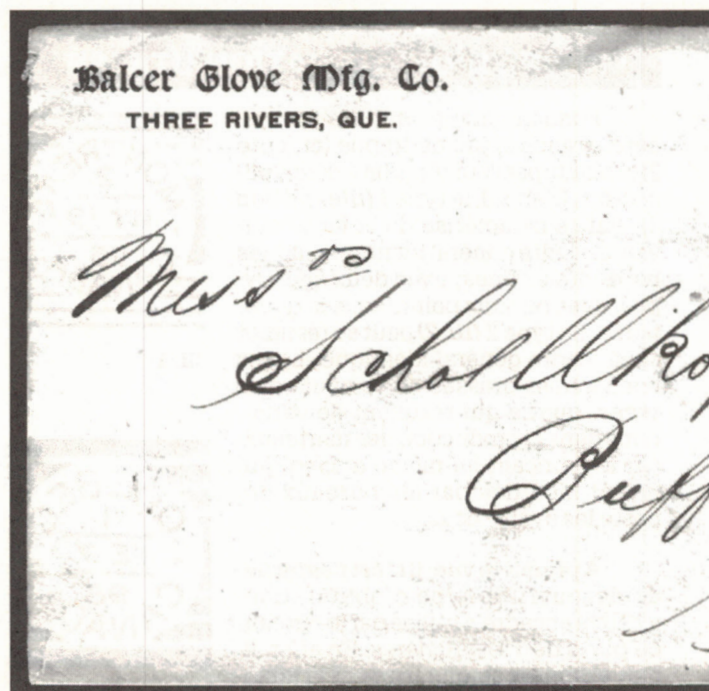 Balcer Glove Mfg. Co.
THREE RIVERS, QUE.
Mess rs
Schoellkop
Buff